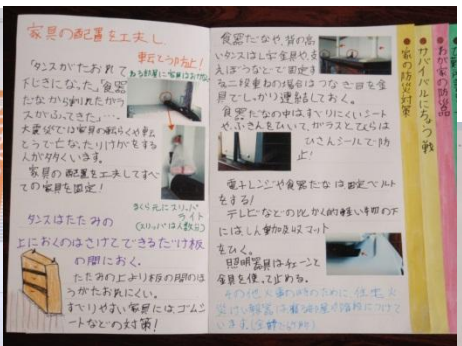 家具の配置を工夫し
転とう防止!
「タンスがたおれて
下じきになった。」「食器
だなから割れたガラ
スがふってきた…。
大震災では家具の転らくや転
とうで亡くなったり、けがをする
人がたくさんいます。
家具の配置を工夫してすべ
ての家具を固定!
まくら元にスリッパ
ライト
(スリッパは人数分)
タンスはたたみの
上におくのはさけてできるだけ板
の間におく。
たたみの上より板の間のほ
うがたおれにくい。
すべりやすい家具には、ゴムシ
ートなどの対策!
食器だなや、背の高
いタンスはL字金具や、支
えぼうなどで固定す
る。二段重ねの場合はつなぎ目を金
具でしっかり連結しておく。
食器だなの中はすべりにくいシート
や、ふきんをひいて、ガラスとびらは
ひさんシールで防
止!
電子レンジや食器だなは固定ベルト
をする!
テレビなどの比かく的軽い物の下
には、しん動吸収マット
をひく。
照明器具はチェーンと
金具を使って止める。
家の防災対策
わが家の防災品
サバイバルにちょう戦